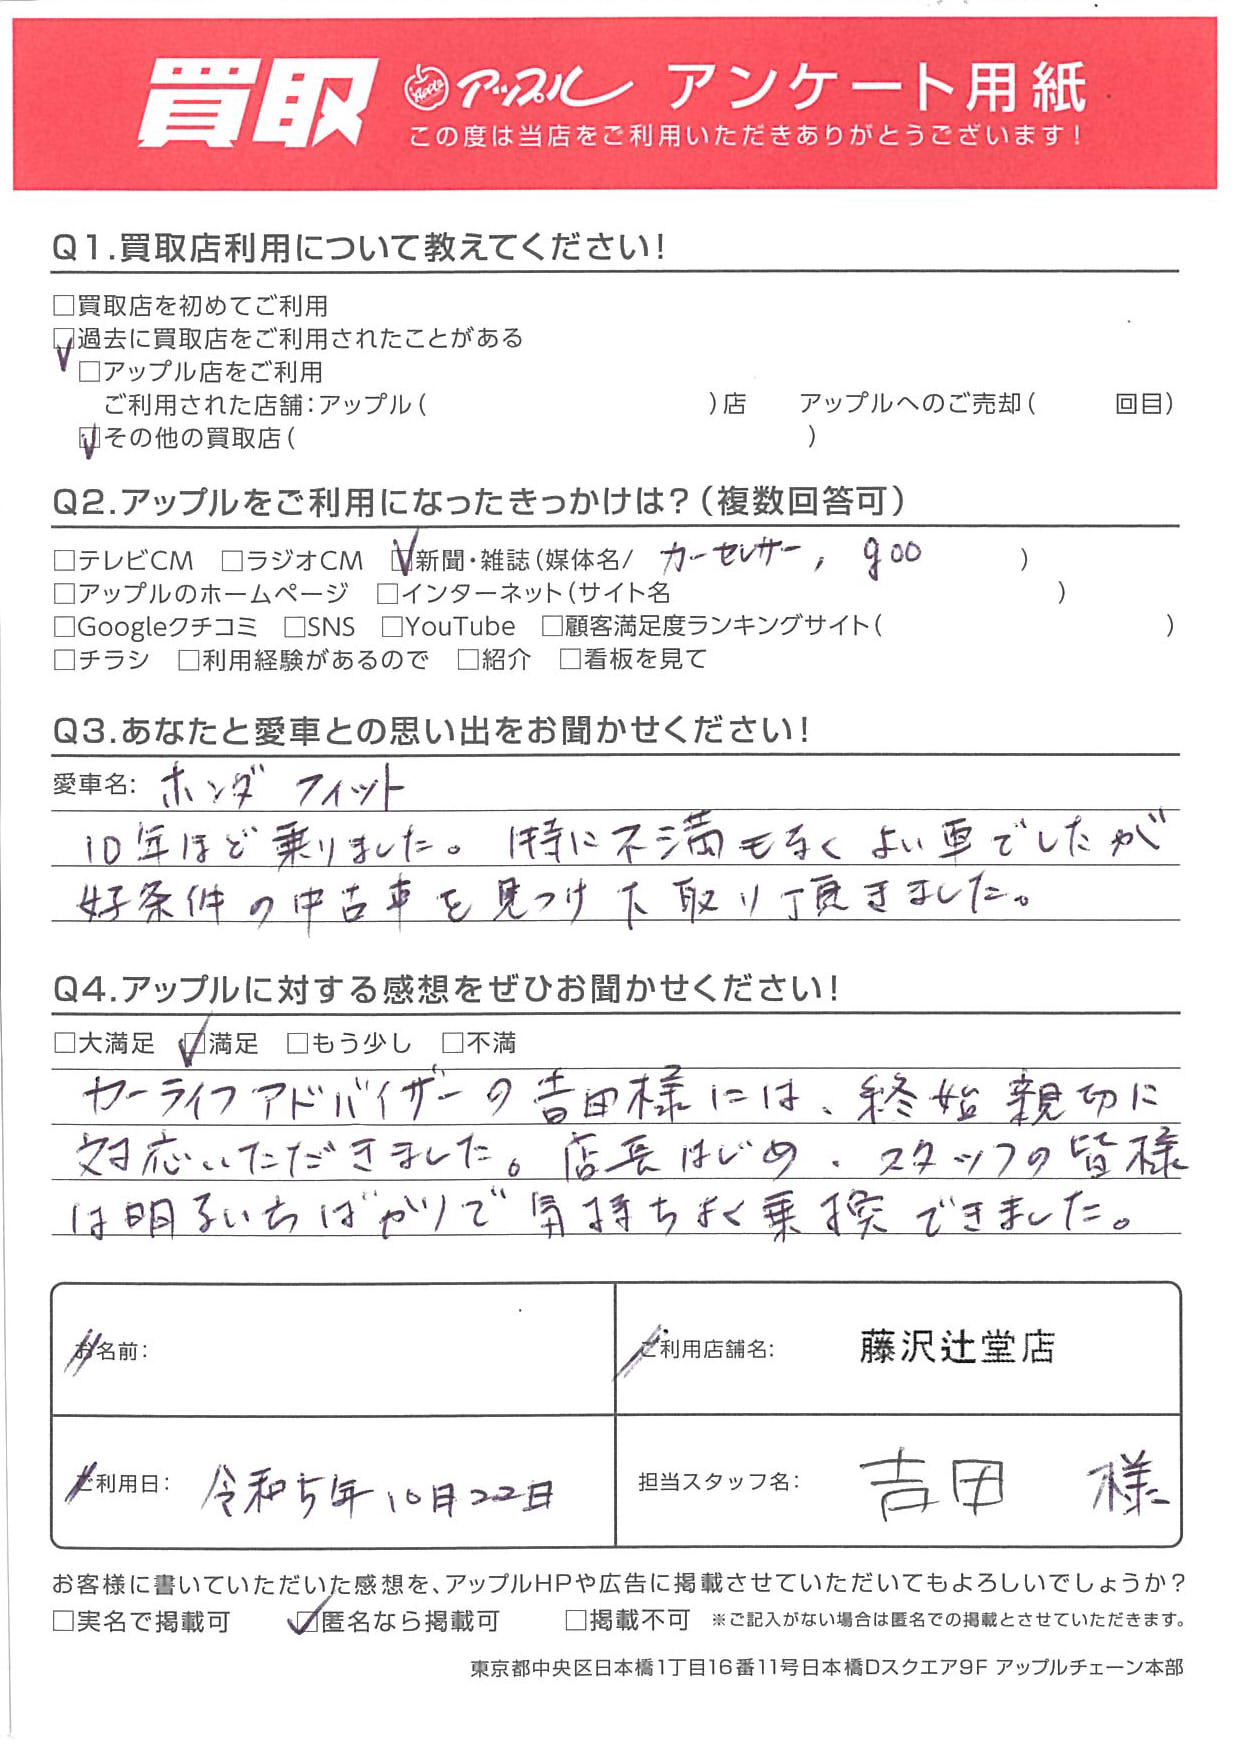 買取 Apple アップル アンケート用紙
この度は当店をご利用いただきありがとうございます!
Q1.買取店利用について教えてください!
□買取店を初めてご利用
☑過去に買取店をご利用されたことがある
□アップル店をご利用
ご利用された店舗:アップル( )店 アップルへのご売却( 回目)
☑その他の買取店( )
Q2.アップルをご利用になったきっかけは?(複数回答可)
□テレビCM □ラジオCM ☑新聞・雑誌(媒体名/ カーセンサー, goo )
□アップルのホームページ □インターネット(サイト名 )
□Googleクチコミ □SNS □YouTube □顧客満足度ランキングサイト( )
□チラシ □利用経験があるので □紹介 □看板を見て
Q3.あなたと愛車との思い出をお聞かせください!
愛車名: ホンダ フィット
10年ほど乗りました。特に不満もなくよい車でしたが
好条件の中古車を見つけ下取り頂きました。
Q4.アップルに対する感想をぜひお聞かせください!
□大満足 ☑満足 □もう少し □不満
カーライフアドバイザーの吉田様には、終始親切に
対応いただきました。店長はじめ、スタッフの皆様
は明るいちばかりで気持ちよく乗換できました。
お名前:
ご利用店舗名: 藤沢辻堂店
ご利用日: 令和5年10月22日
担当スタッフ名: 吉田 様
お客様に書いていただいた感想を、アップルHPや広告に掲載させていただいてもよろしいでしょうか?
□実名で掲載可 ☑匿名なら掲載可 □掲載不可 ※ご記入がない場合は匿名での掲載とさせていただきます。
東京都中央区日本橋1丁目16番11号日本橋Dスクエア9F アップルチェーン本部